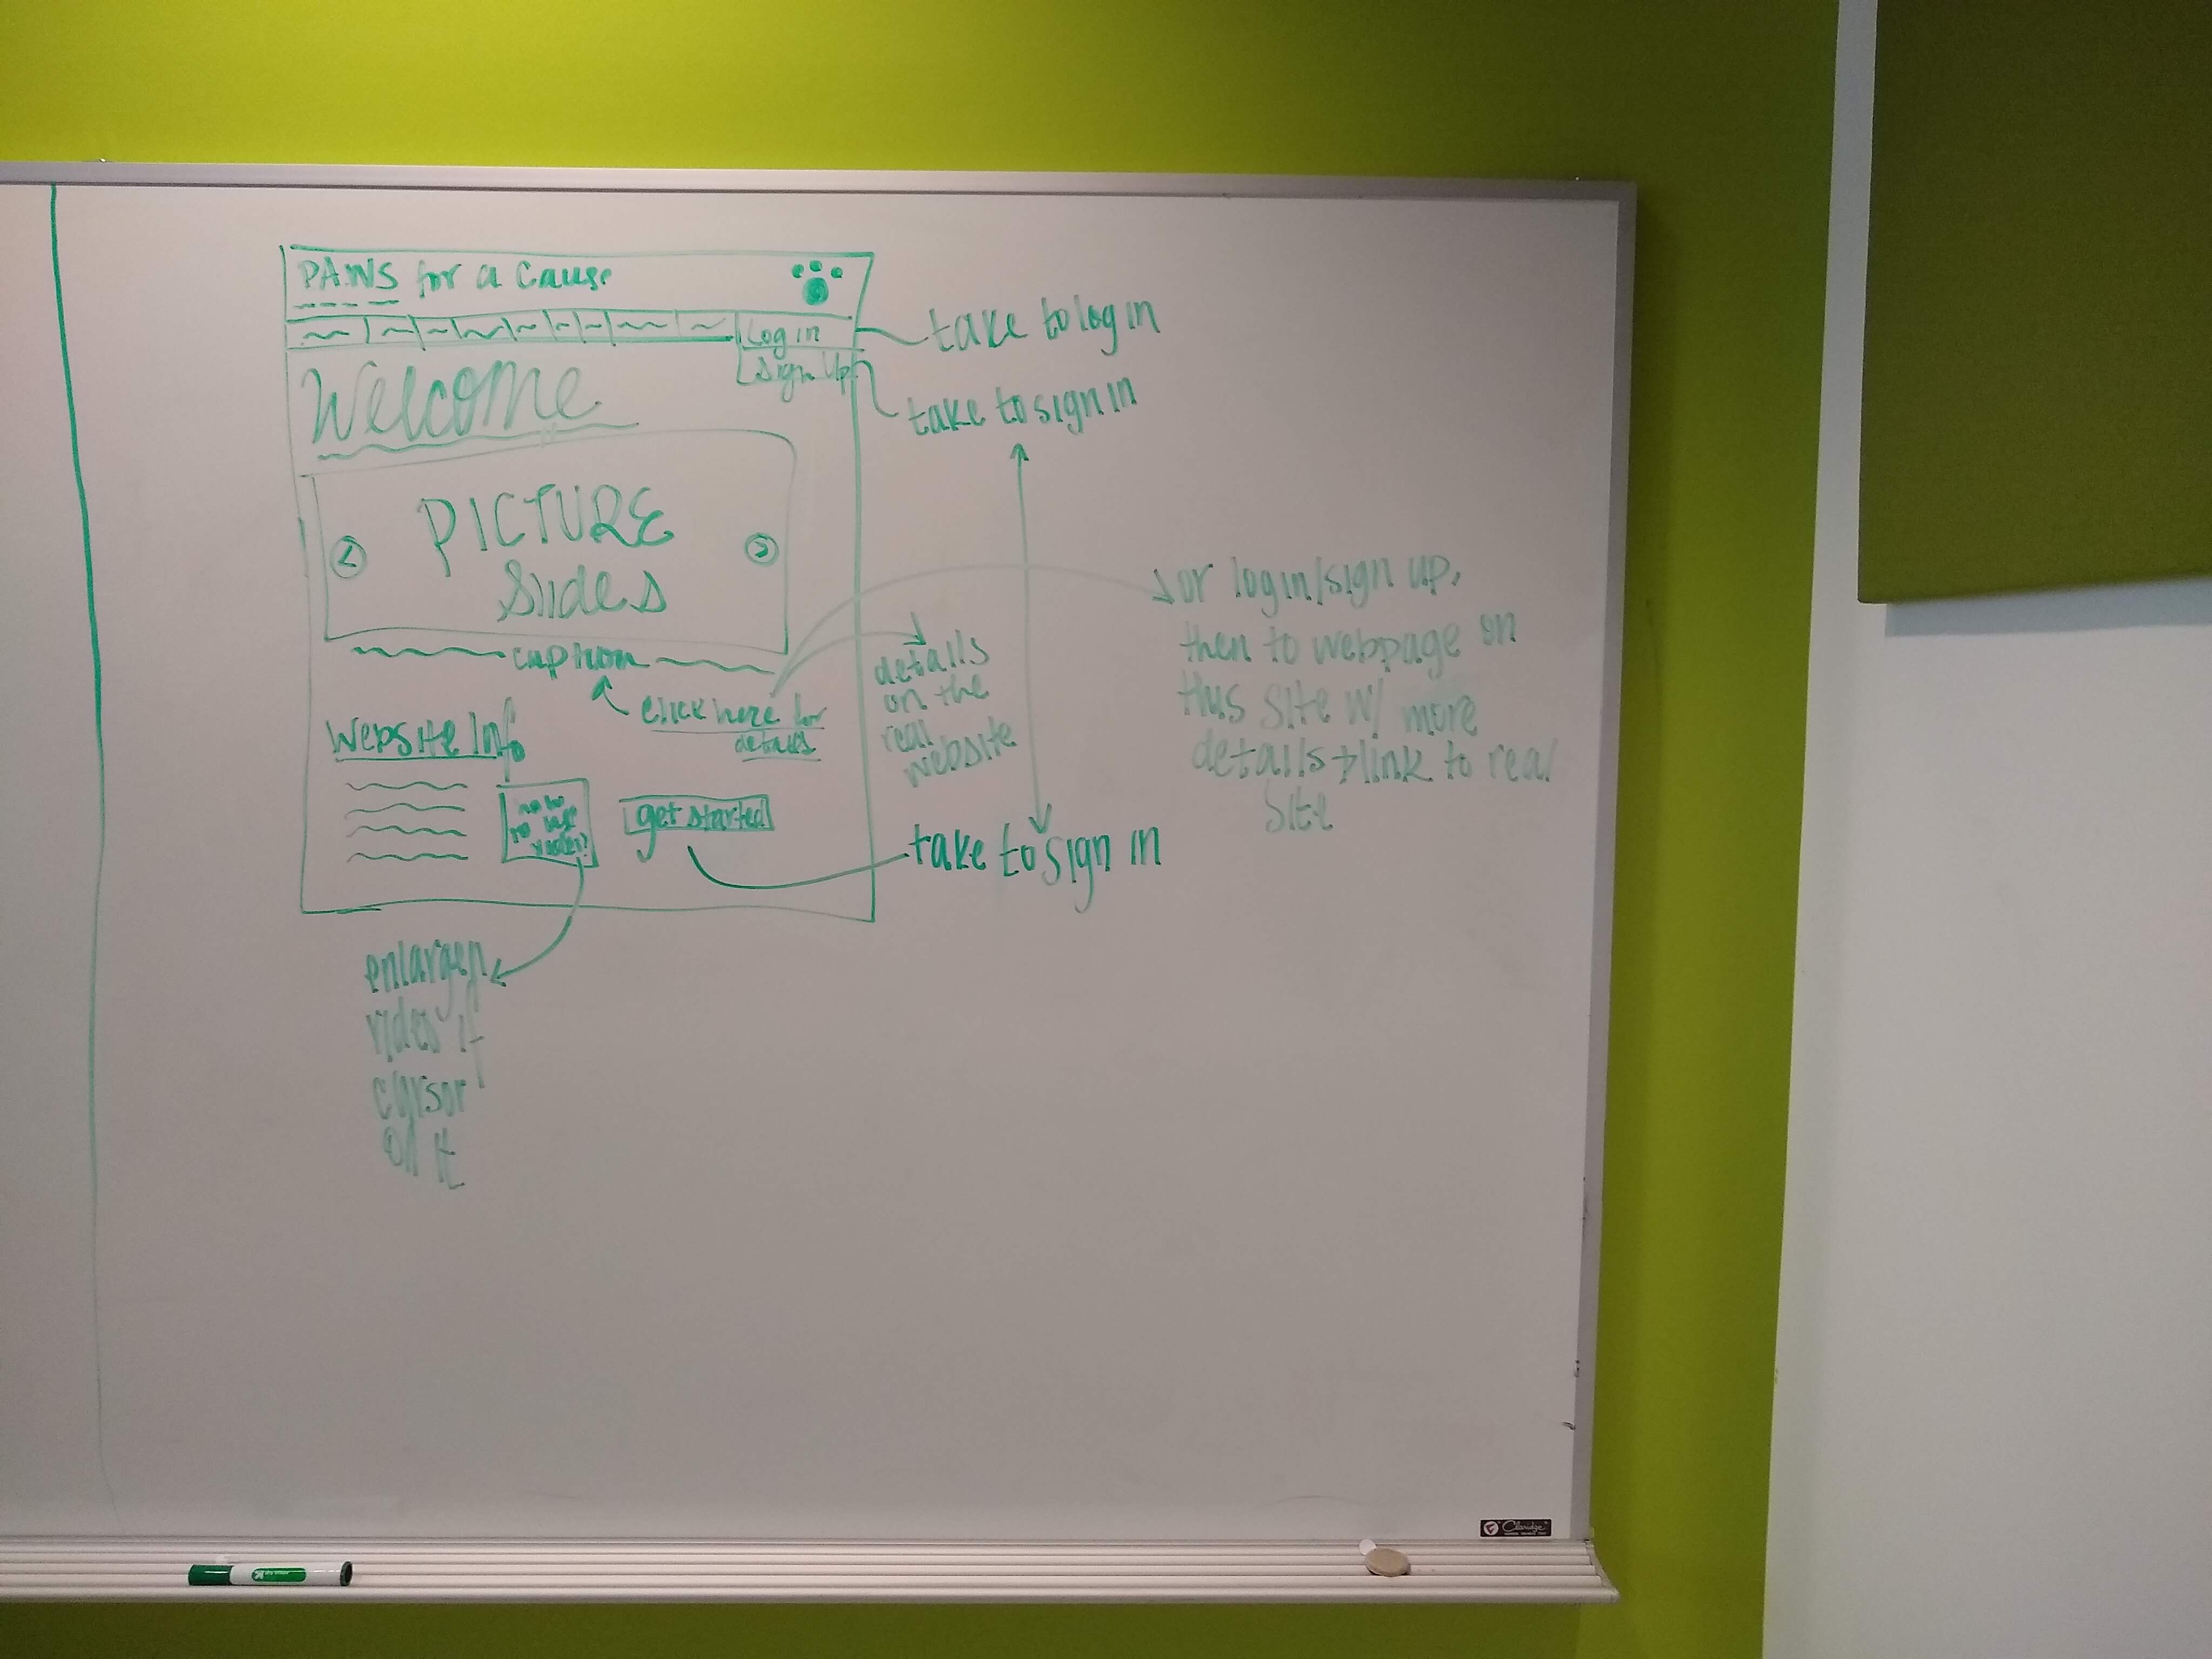 PAWS for a Cause
Log in
Sign Up
take to log in
take to sign in
Welcome
PICTURE
Slides
caption
click here for
details
details
on the
real
website
or login/sign up,
then to webpage on
this site w/ more
details + link to real
site
Website Info
how to
use
video?
get started
take to sign in
enlargen
video if
cursor
on it
Claridge